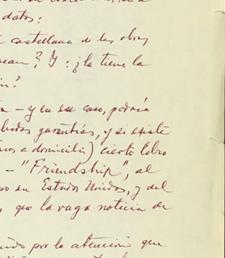 datos:
castellana de las obras
? Y: ¿la tiene la
– y en ese caso, podría
garantías, y si existe
a domicilio) cierto libro
– "Friendship", al
en Estados Unidos, y del
que la vaga noticia de
por la atención que